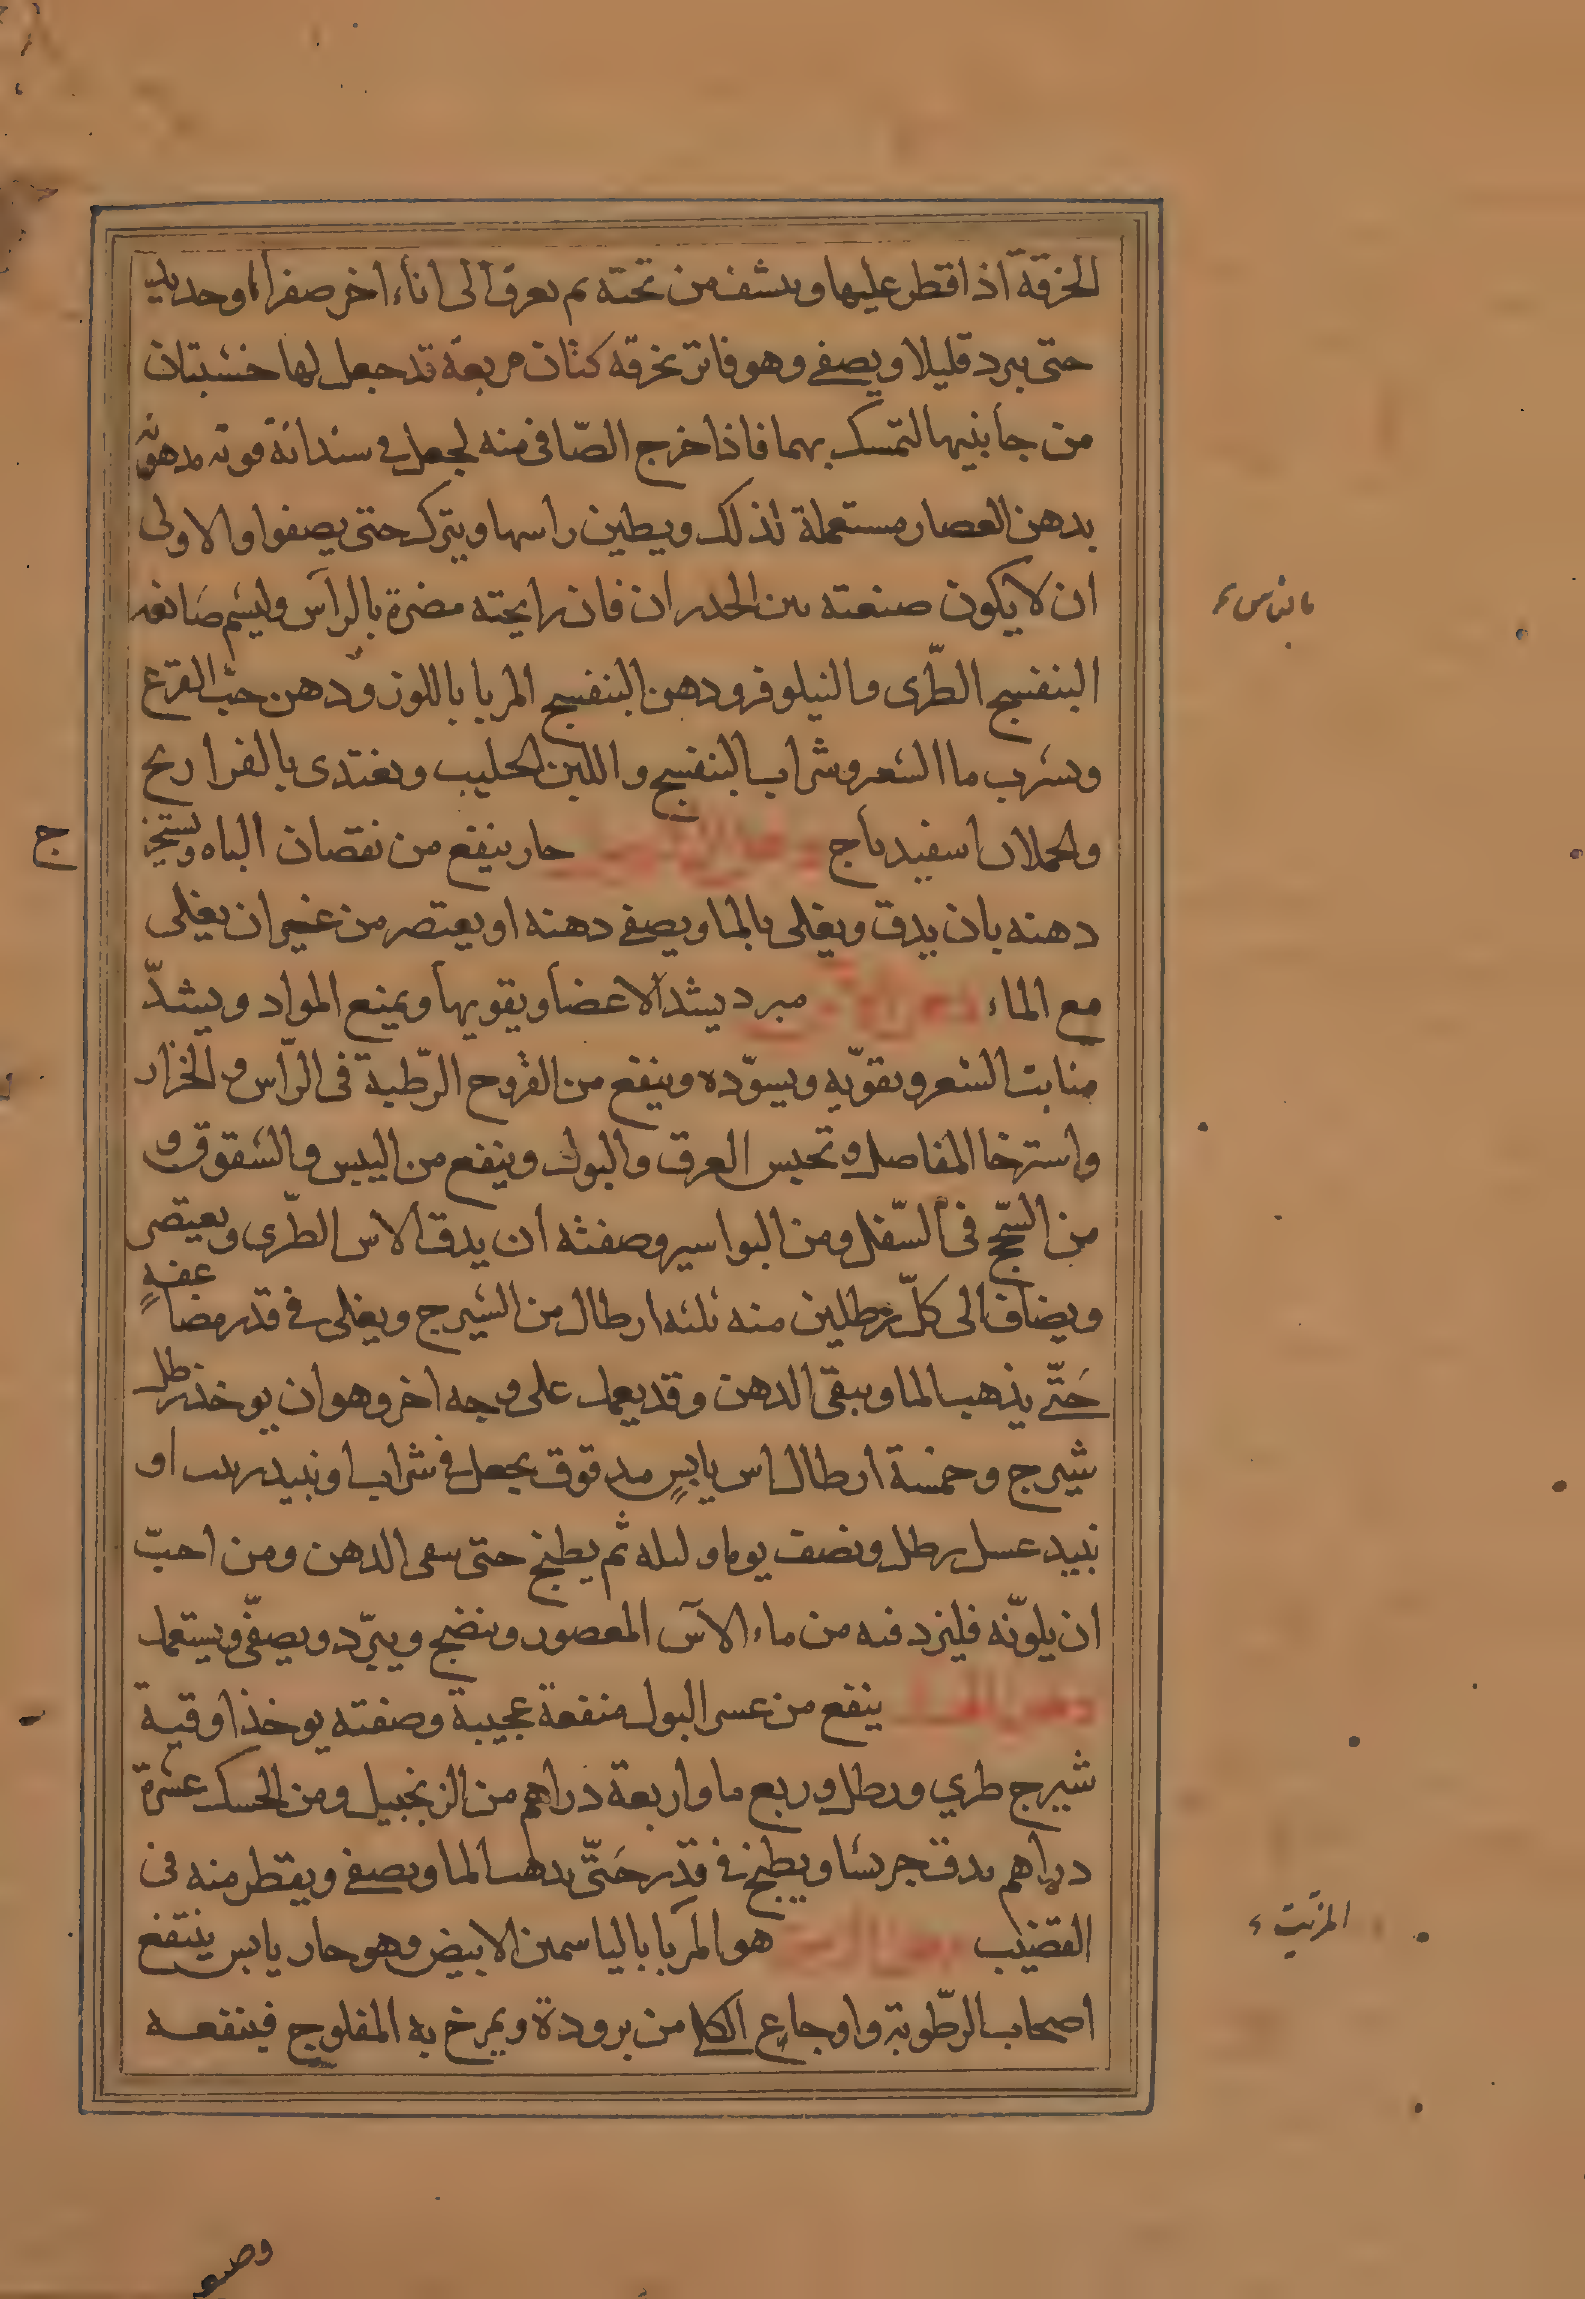 الخرقة اذا قطر عليها وينشف من تحته ثم يعرق الى اناء اخر صفرا
حتى يبرد قليلا ويصفى وهو فاتر بخرقه كتان مربعة قد جعل لها خشبتان
من جانبيها لتمسك بهما فاذا خرج الصّافى منه لجعل فى سندانة
بدهن العصار مستعملة لذلك ويطين راسها ويترك حتى يصفوا والاولى
ان لا يكون صنعته بين الجدران فان رايحته مضرة بالرأس وليشم صانعه
البنفسج الطّرى والنيلوفر ودهن البنفسج المربا باللوز ودهن حبّ القرع
ويشرب ما الشعير وشراب البنفسج واللبن الحليب ويغتدى بالفراريج
والحملان اسفيدباج حار ينفع من نقصان الباه ويستخرج
دهنه بان يدق ويغلى بالما ويصفى دهنه او يعتصر من غير ان يغلى
مع الماء مبرد يشد الاعضا ويقويها ويمنع المواد ويشدّ
منابت الشعر ويقوّيه ويسوّده وينفع من القروح الرّطبة فى الرّأس والحزاز
واسترخا المفاصل وتحبس العرق والبول وينفع من اليبس والشقوق و
من السّحج فى السّفل ومن البواسير وصفته ان يدق الاس الطّرى ويعتصر
ويضاف الى كلّ رطلين منه ثلثه ارطال من الشيرج ويغلى فى قدر مضاعفةٍ
حَتّى يذهب الما ويبقى الدهن وقد يعمل على وجه اخر وهو ان يوخذ رطل
شيرج وخمسة ارطال اس يابسٍ مدقوق يجعل فى شراب او نبيد زبيب او
نبيد عسل رطل ونصف يوما وليله ثم يطبخ حتى يبقى الدهن ومن احبّ
ان يلوّنه فليزد فيه من ماء الآس المعصور وينضج ويبرّد ويصفّى ويستعمل
ينفع من عسر البول منفعة عجيبة وصفته يوخذ اوقية
شيرج طري ورطل وربع ما واربعة دراهم من الزنجبيل ومن الحسك عشرة
دراهم يدق جريشا ويطبخ فى قدر حَتّى يذهب الما ويصفى ويقطر منه فى
القضيب هو المربا بالياسمين الابيض وهو حار يابس ينتفع
اصحاب الرّطوبة واوجاع الكلا من برودة ويمرخ به المفلوج فينفعه
ج